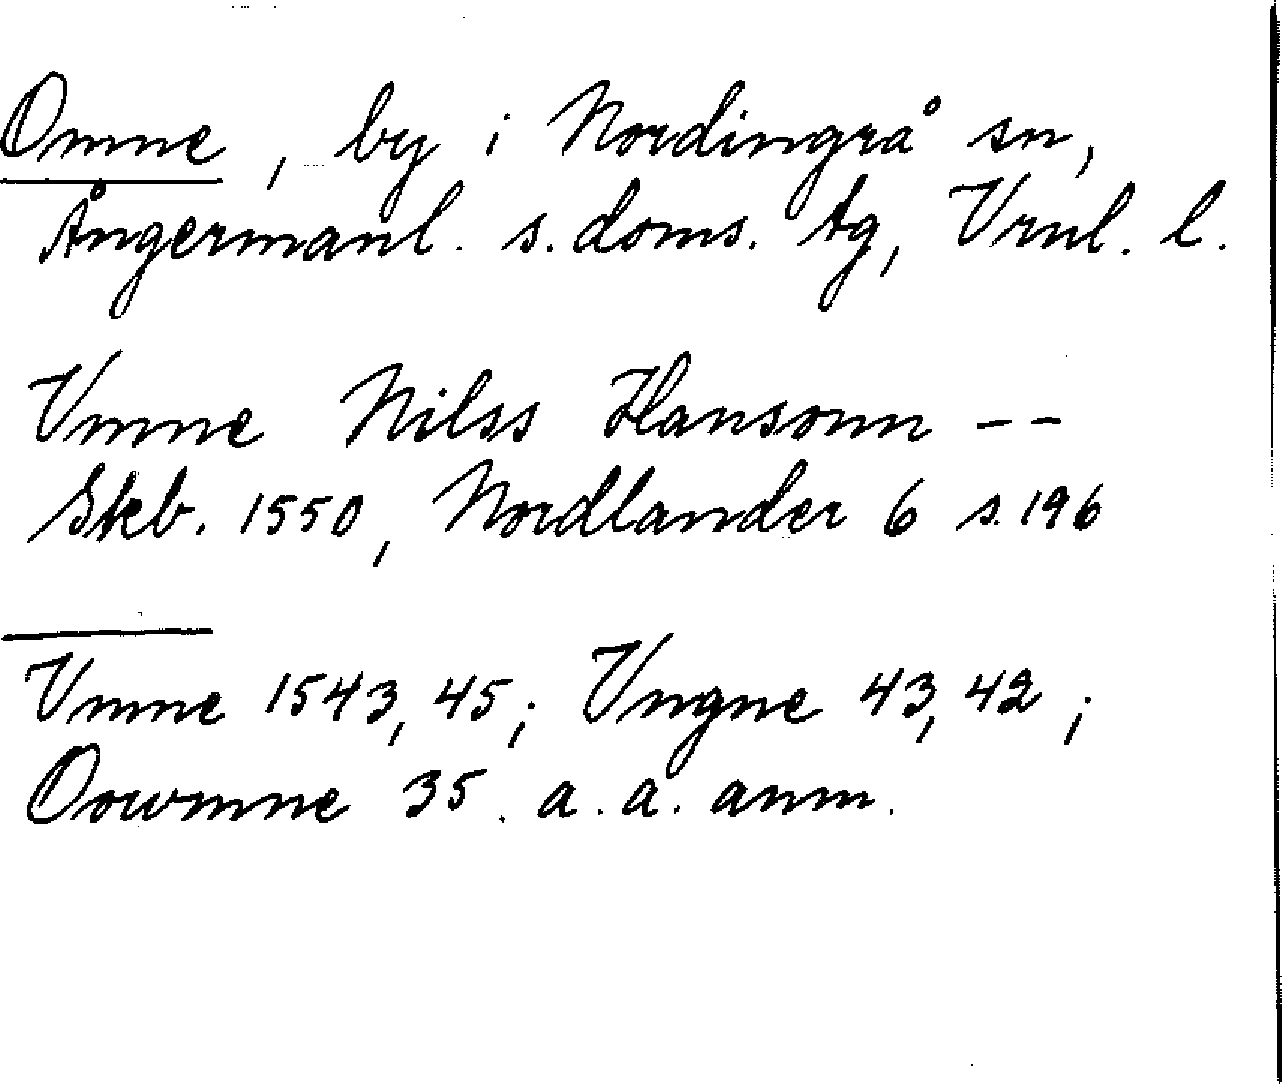 Omne, by i Nordingrå sn,
Ångermanl. s. doms. tg, Vrnl. l.
Vmne Nilss Hansonn --
Skb. 1550, Nordlander 6 s. 196
Vmne 1543, 45; Vngne 43, 42;
Oowmne 35. a. a. anm.